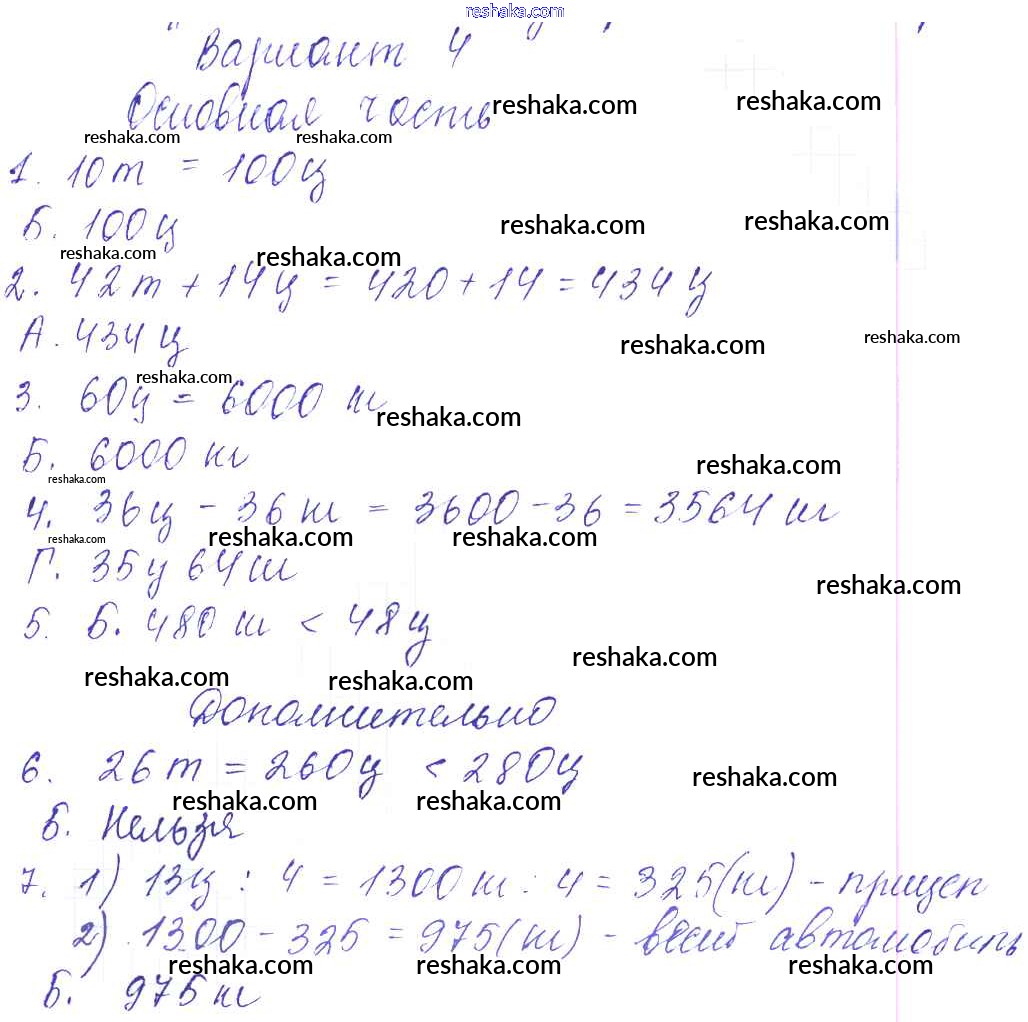 reshaka.com
Вариант 4
Основная часть
reshaka.com reshaka.com
reshaka.com reshaka.com
1. 10 т = 100 ц
Б. 100 ц
reshaka.com reshaka.com
reshaka.com reshaka.com
2. 42 т + 14 ц = 420 + 14 = 434 ц
А. 434 ц
reshaka.com reshaka.com
reshaka.com
3. 60 ц = 6000 кг
reshaka.com
Б. 6000 кг
reshaka.com
reshaka.com
4. 36 ц - 36 кг = 3600 - 36 = 3564 кг
reshaka.com reshaka.com reshaka.com
Г. 35 ц 64 кг
reshaka.com
5. Б. 480 кг < 48 ц
reshaka.com
reshaka.com reshaka.com
Дополнительно
6. 26 т = 260 ц < 280 ц
reshaka.com
reshaka.com reshaka.com
Б. Нельзя
7. 1) 13 ц : 4 = 1300 кг : 4 = 325 (кг) - прицеп
2) 1300 - 325 = 975 (кг) - весит автомобиль
reshaka.com reshaka.com reshaka.com
Б. 975 кг